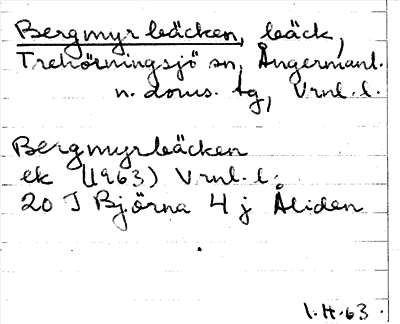 Bergmyrbäcken, bäck,
Trehörningsjö sn, Ångermanl.
n. doms. tg, Vrnl. l.
Bergmyrbäcken
ek (1963) Vrnl. l.
20 J Björna 4 j Åliden
1.H.63.